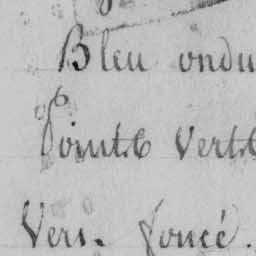 Bleu ondu
Pointe Verte
Vers. foncé.